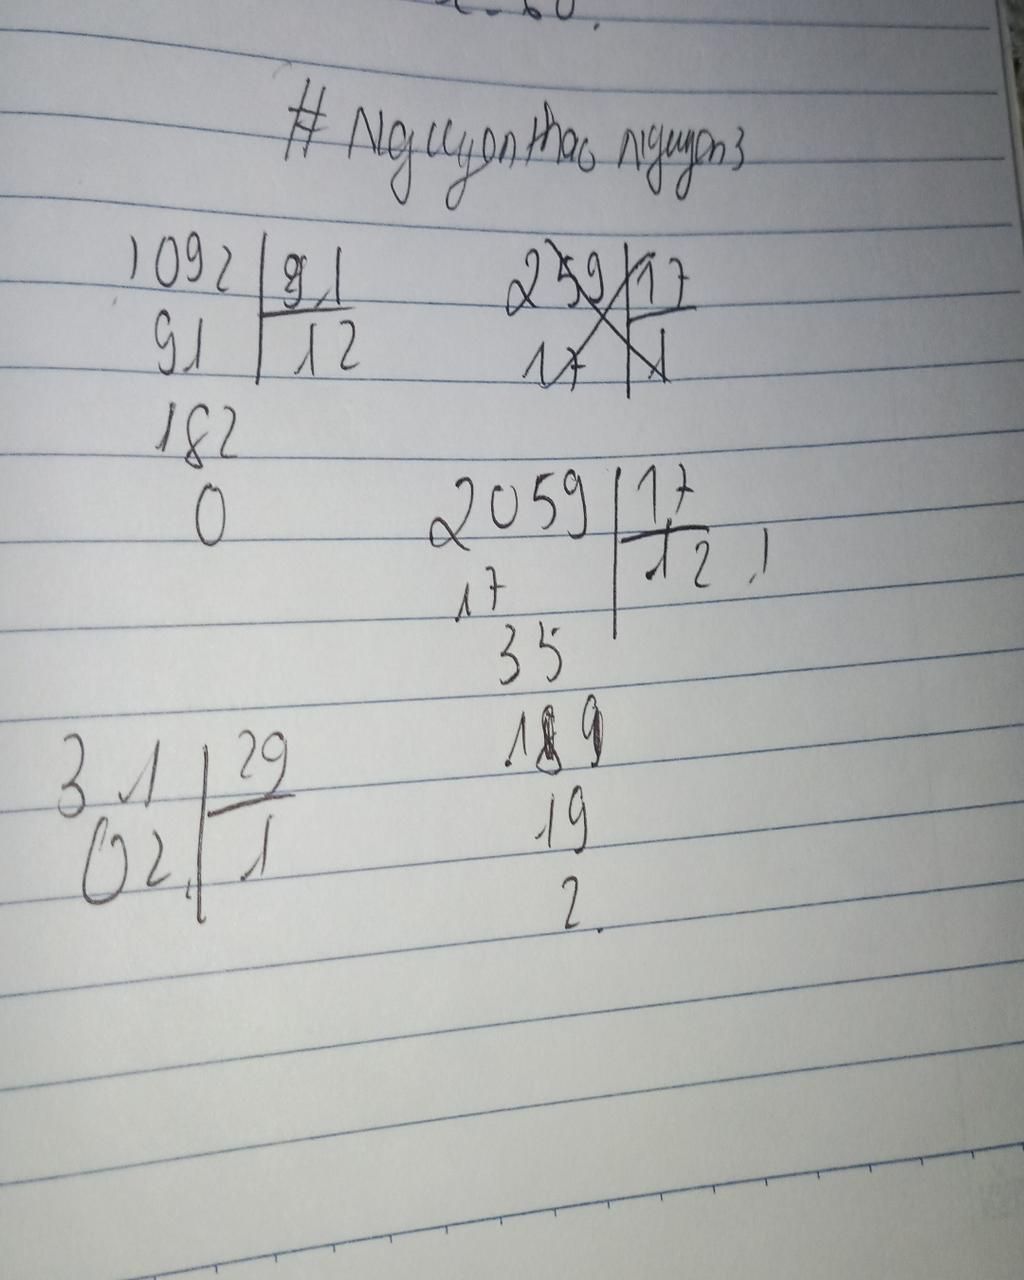 # Nguyonthao nguyon3
1092 91
91 12
182
0
259 17
17 1
2059 17
17 12,1
35
189
19
2.
31 29
02 1